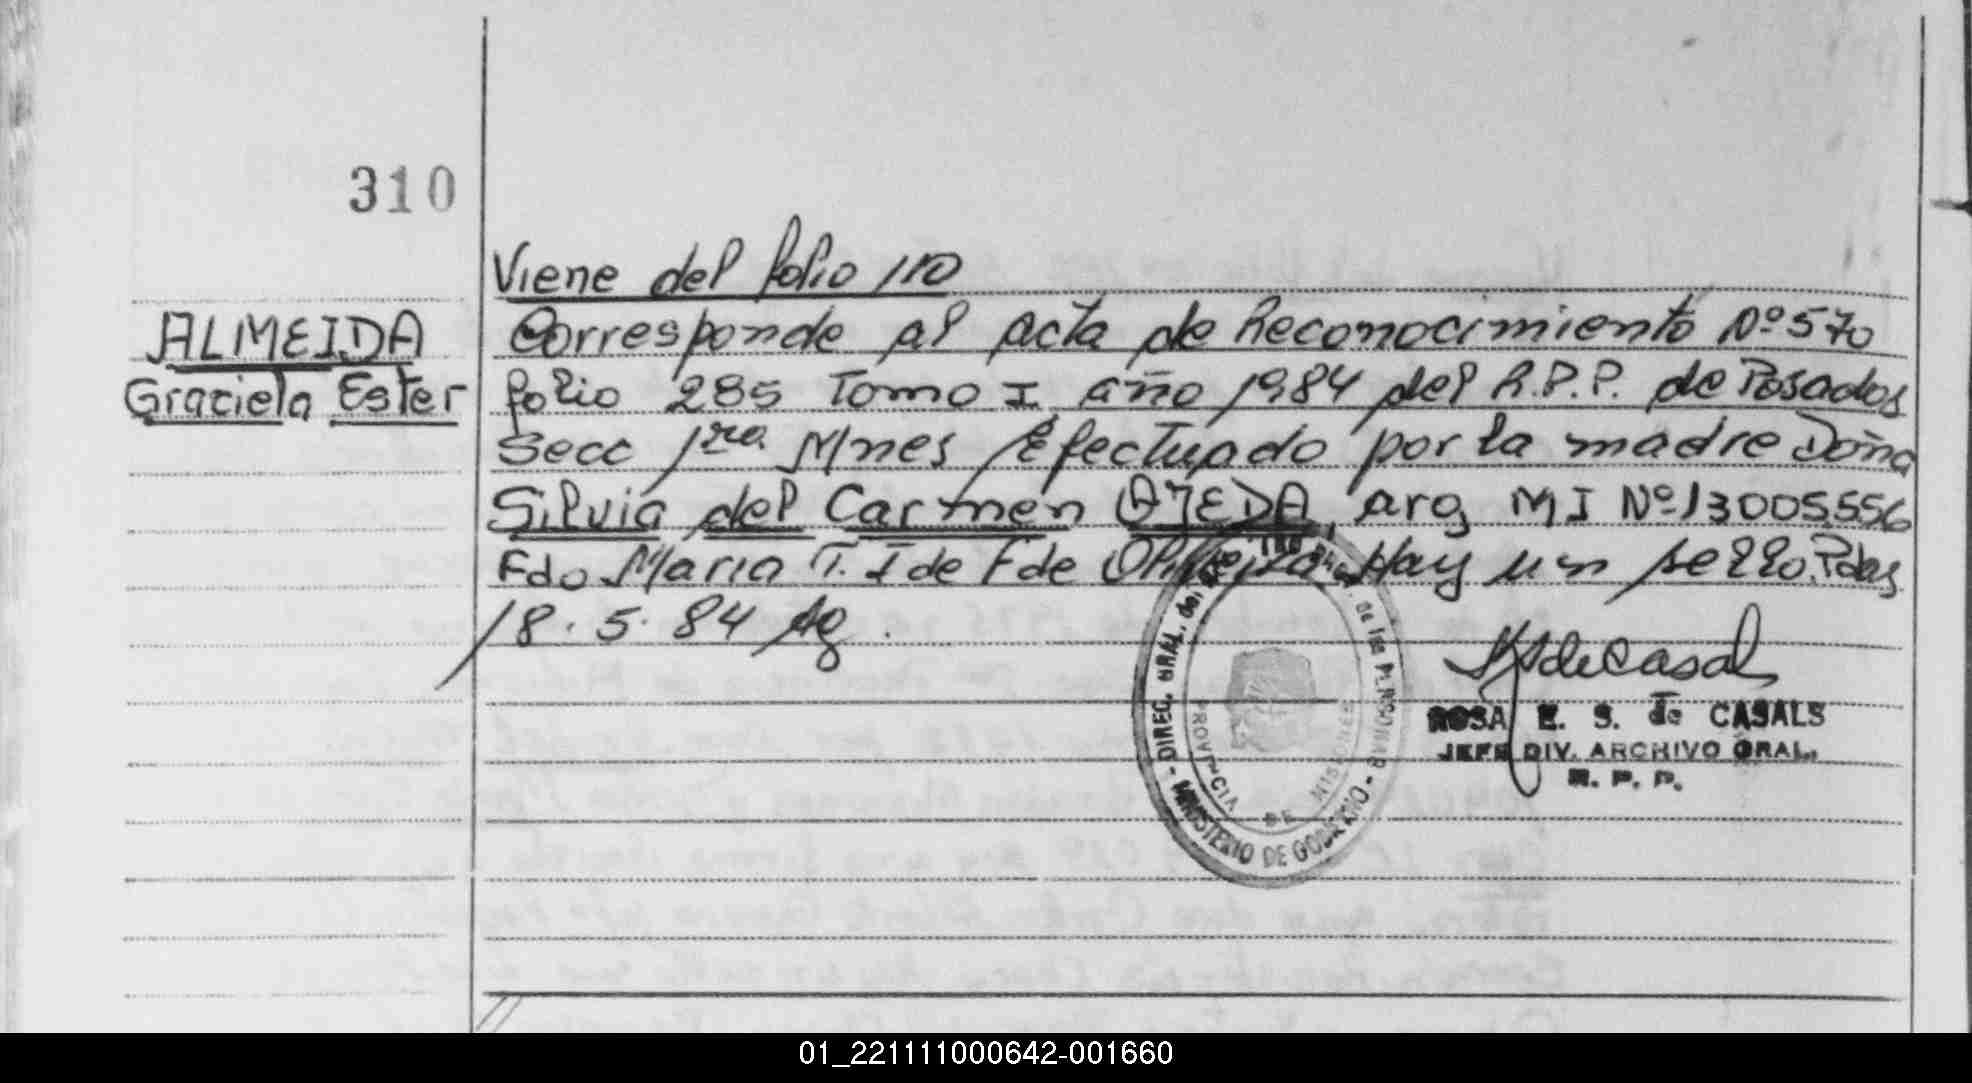 310
Viene del folio 110
ALMEIDA
Graciela Ester
Corresponde al acta de Reconocimiento Nº 570
folio 285 Tomo I año 1984 del R.P.P. de Posadas
Secc 1ra Mnes Efectuado por la madre Doña
Silvia del Carmen OJEDA, arg MI Nº 13005556
Fdo Maria T. I de F de Hay un sello. Pdas
18.5.84
ROSA E. S. de CASALS
JEFE DIV. ARCHIVO GRAL.
R. P. P.
DIREC. GRAL. del de las PERSONAS
PROVINCIA DE MISIONES
MINISTERIO DE GOBIERNO
01_221111000642-001660